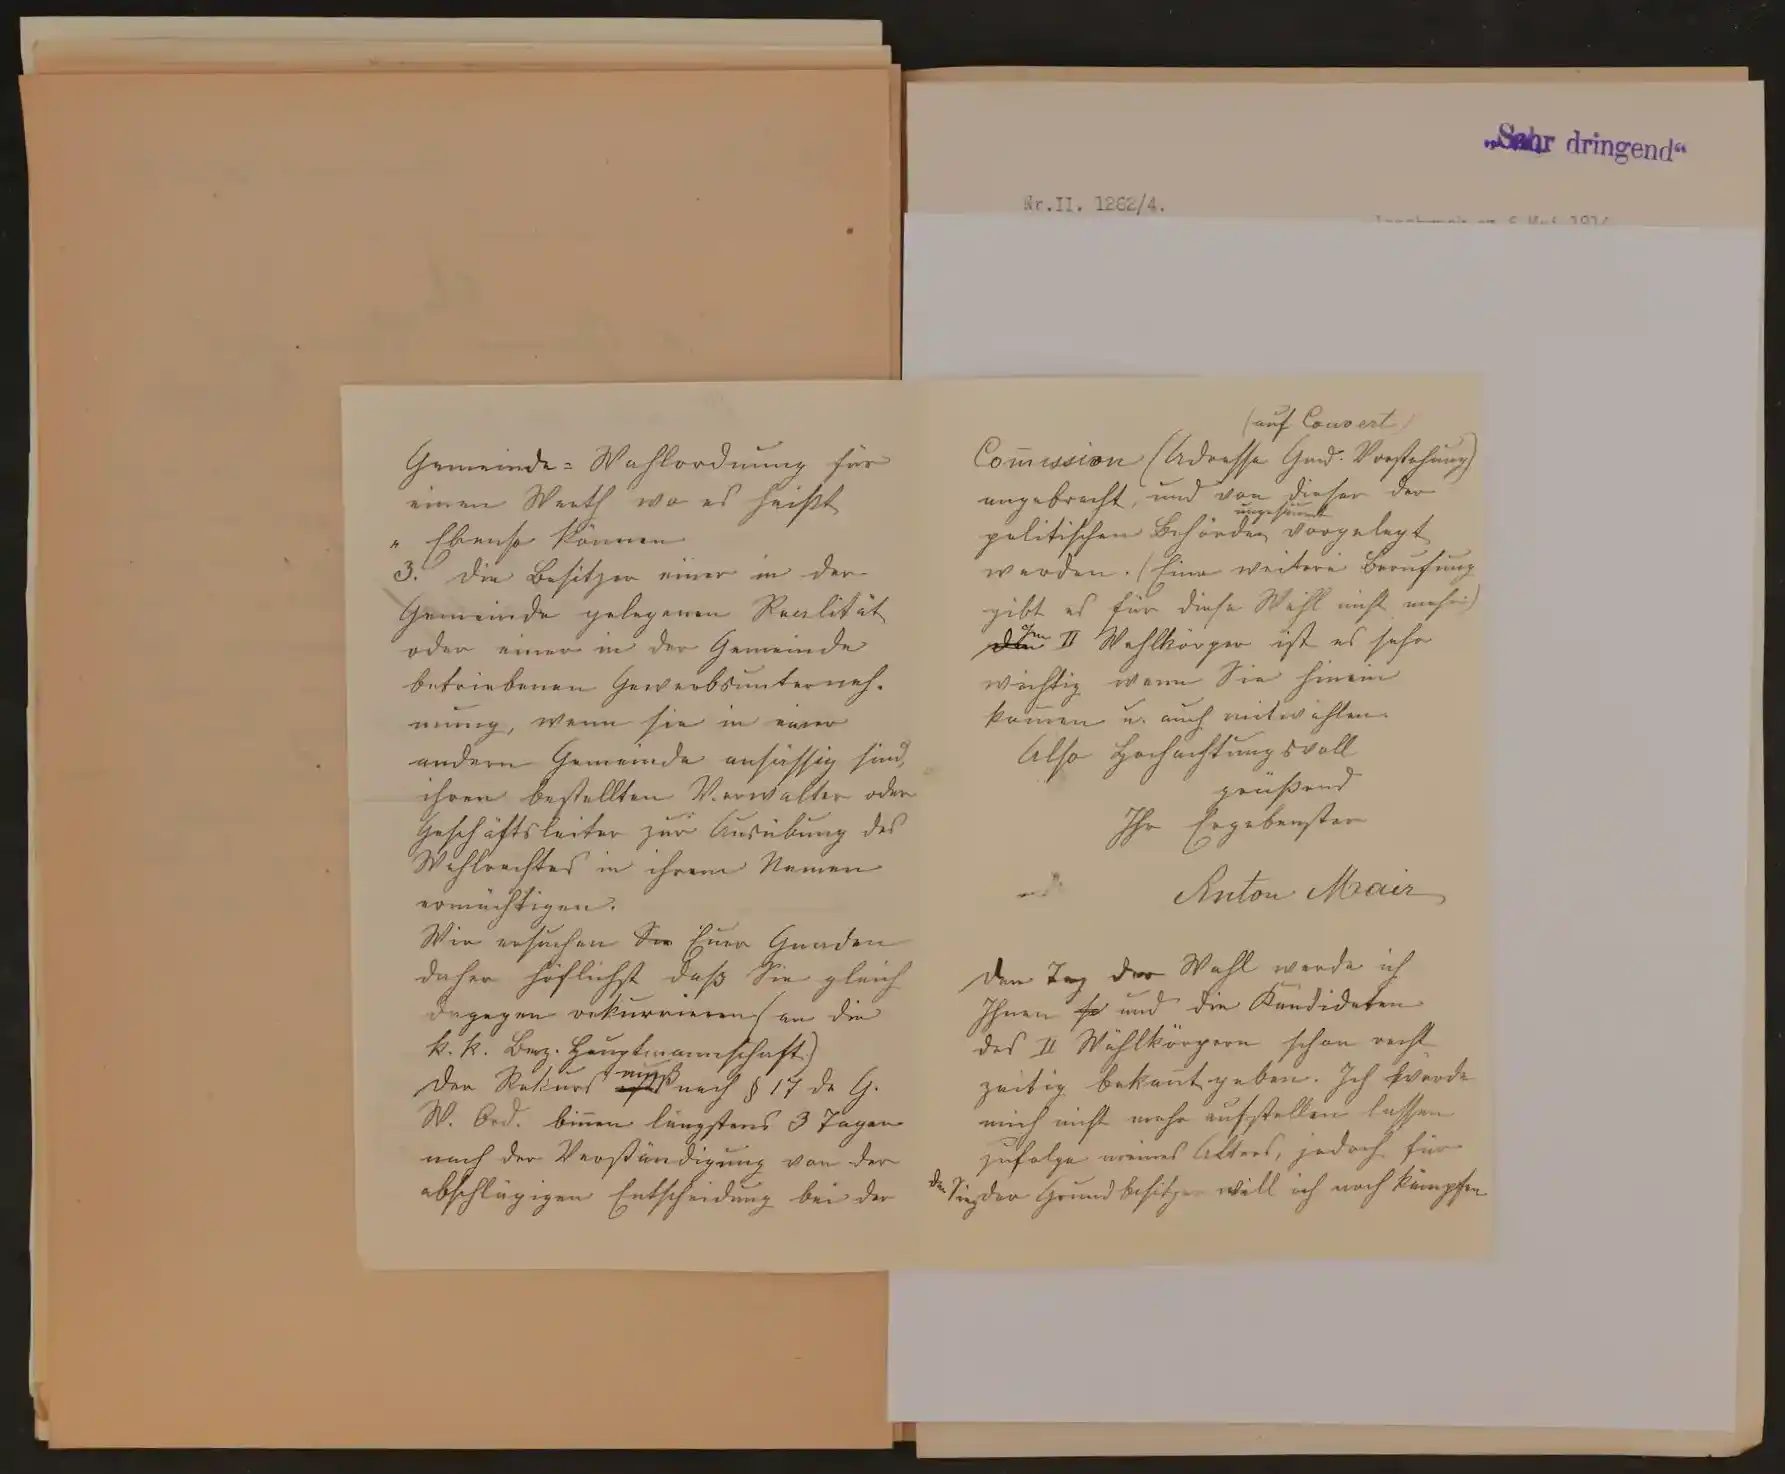 „Sehr dringend“
Nr.II. 1262/4.
Innsbruck am 6 Mai 1914
Gemeinde = Wahlordnung für
einen Werth wo es heißt
„ Ebenso können
3. die Besitzer einer in der
Gemeinde gelegenen Realität
oder einer in der Gemeinde
betriebenen Gewerbsunterneh-
mung, wenn sie in einer
andern Gemeinde ansässig sind,
ihren bestellten Verwalter oder
Geschäftsleiter zur Ausübung des
Wahlrechtes in ihrem Namen
ermächtigen.
Wir ersuchen Sie Euer Gnaden
daher höflichst daß Sie gleich
dagegen rekurrieren (an die
k. k. Bez. Hauptmannschaft)
Der Rekurs muß nach § 17 de G.
W. Ord. binnen längstens 3 Tagen
nach der Verständigung von der
abschlägigen Entscheidung bei der
(auf Couvert)
Com̅ission (Adresse Gmd. Vorstehung)
angebracht, und von dieser der
ungesäumt
politischen Behörden vorgelegt
werden. (Eine weitere Berufung
gibt es für diese Wahl nicht mehr)
Im II Wahlkörper ist es sehr
wichtig wenn Sie hinein
kom̅en u. auch mitwählen.
Also Hochachtungsvoll
grüßend
Ihr Ergebenster
Anton Mair
Den Tag der Wahl werde ich
Ihnen so und die Kandidaten
des II Wahlkörpern schon recht
zeitig bekan̅t geben. Ich werde
mich nicht mehr aufstellen lassen
zufolge meines Alters, jedoch für
den Sieg der Grundbesitzer will ich noch kämpfen